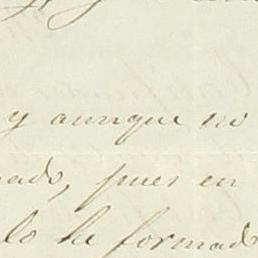 y aunque no
nado, pues en
lo he formado